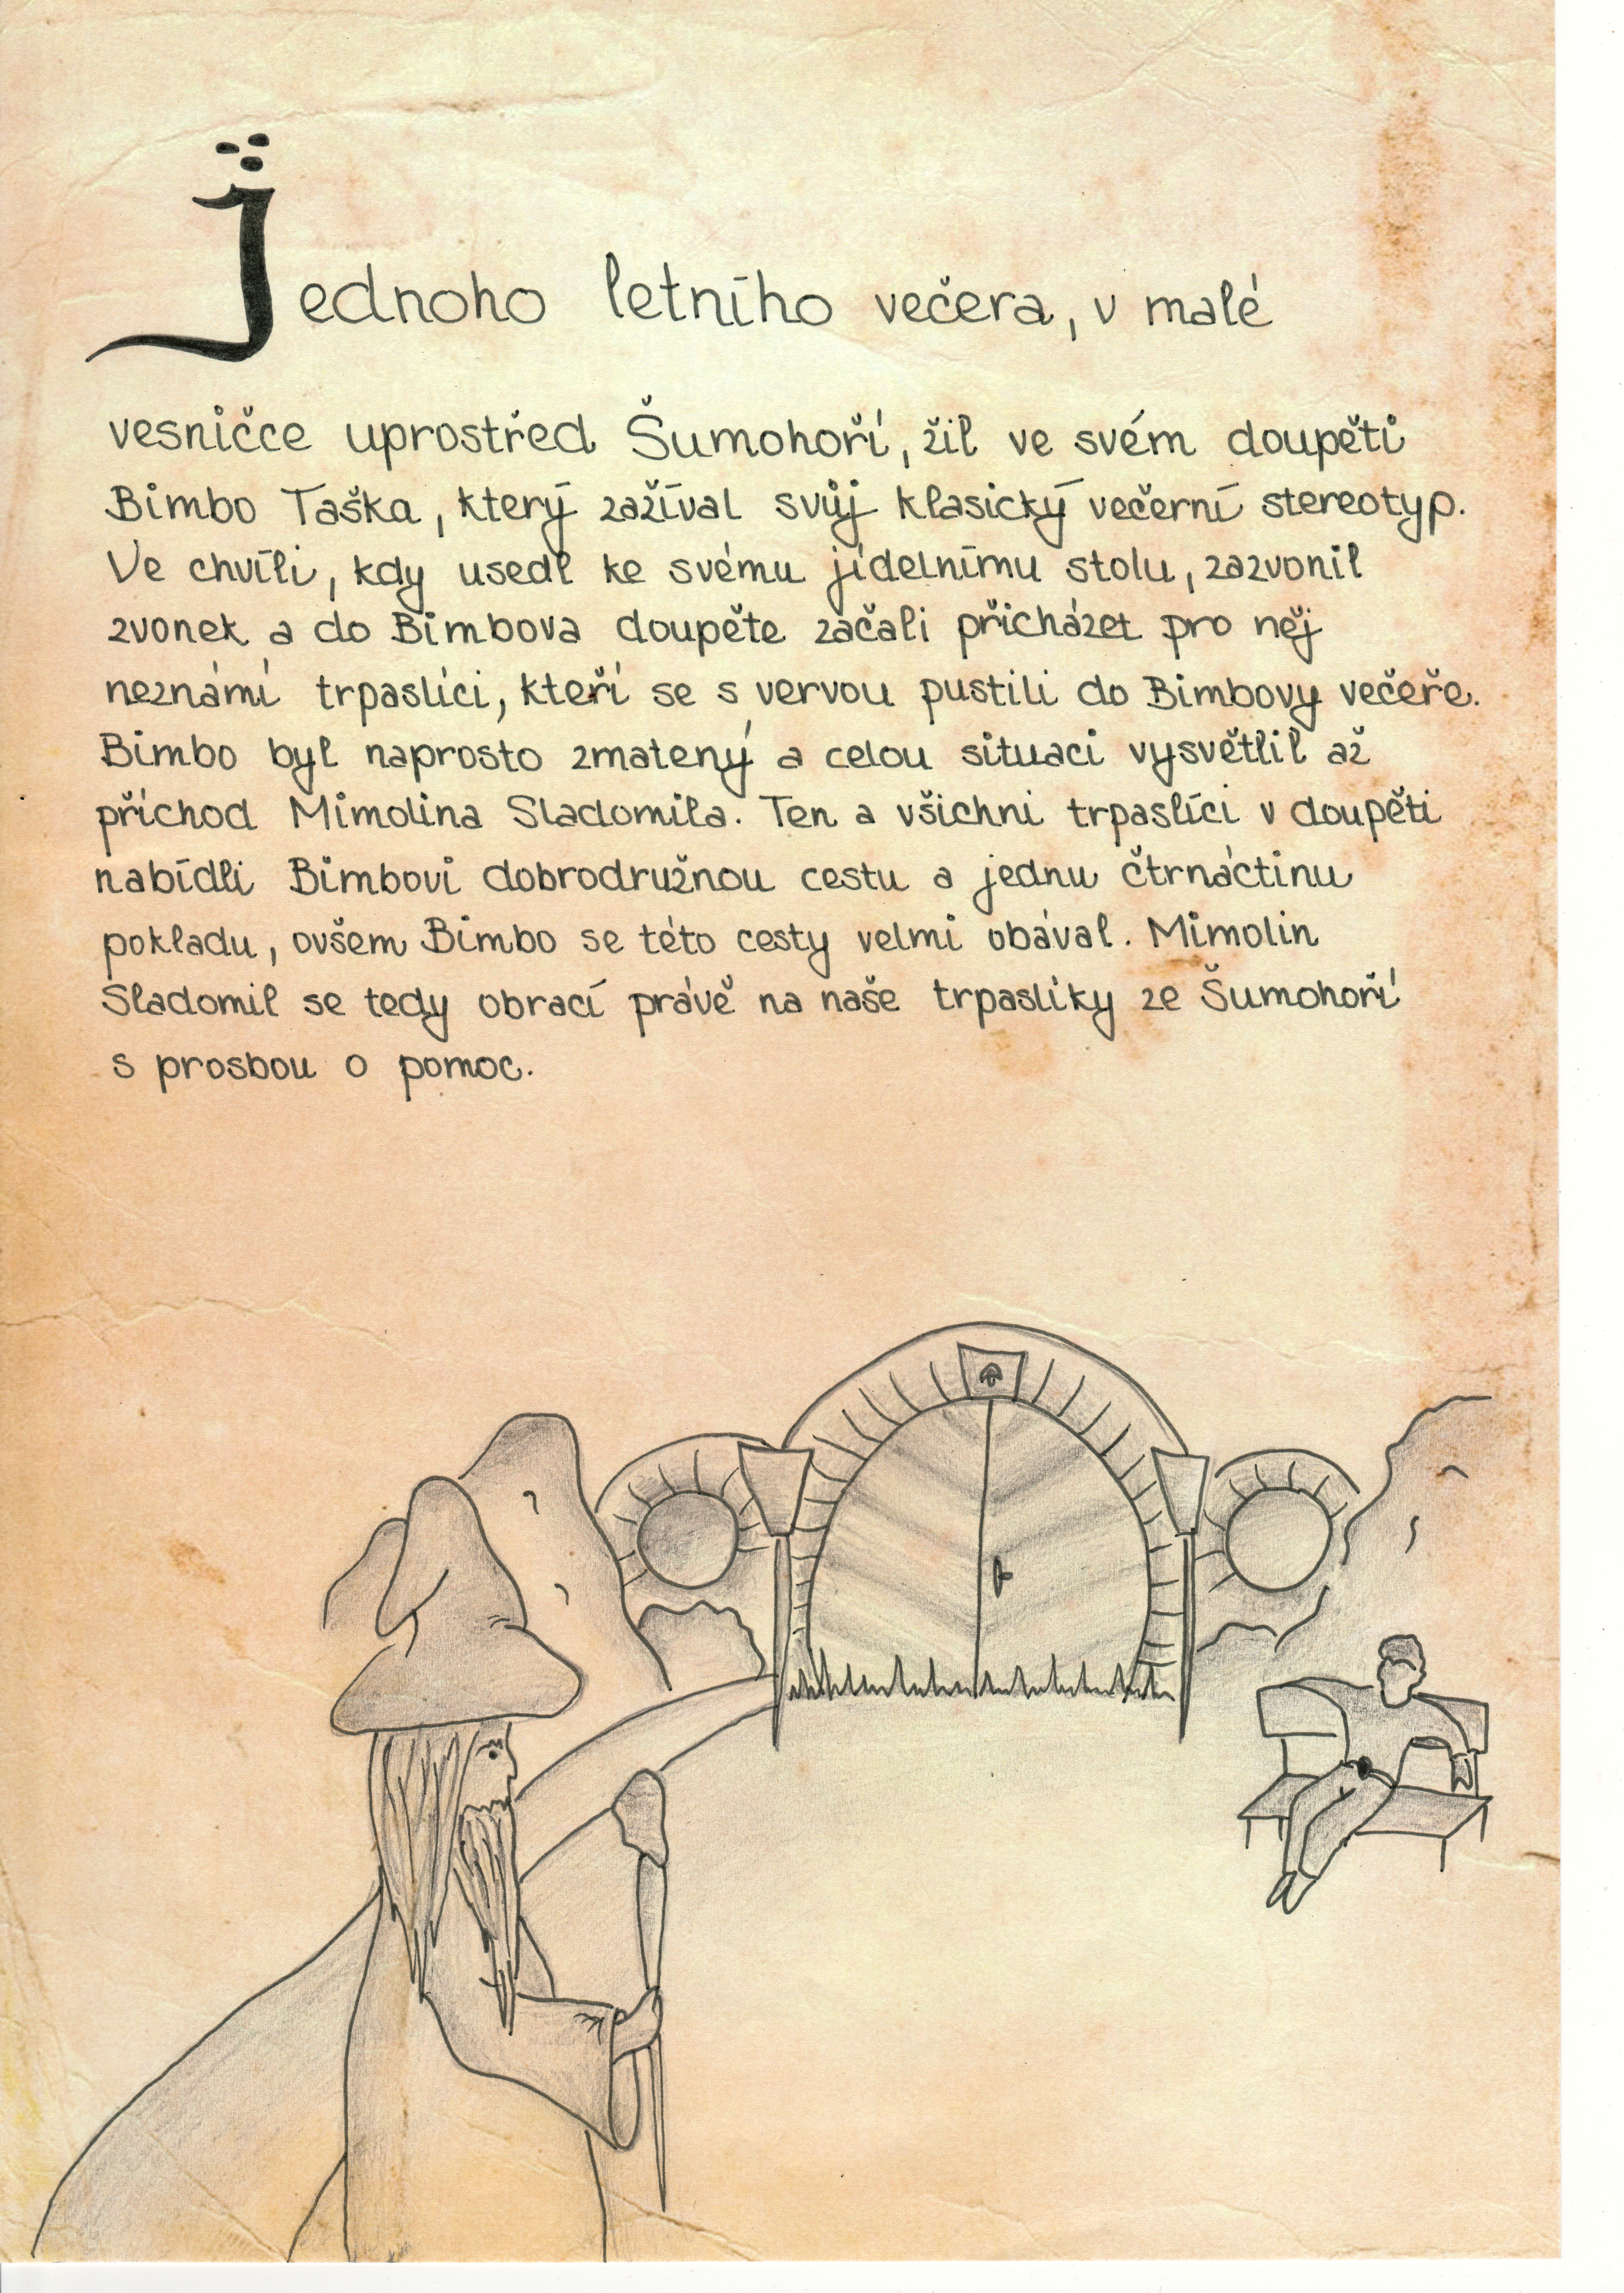 Jednoho letního večera, v malé
vesničce uprostřed Šumohoří, žil ve svém doupěti
Bimbo Taška, který zažíval svůj klasický večerní stereotyp.
Ve chvíli, kdy usedl ke svému jídelnímu stolu, zazvonil
zvonek a do Bimbova doupěte začali přicházet pro něj
neznámí trpaslíci, kteří se s vervou pustili do Bimbovy večeře.
Bimbo byl naprosto zmatený a celou situaci vysvětlil až
příchod Mimolina Sladomila. Ten a všichni trpaslíci v doupěti
nabídli Bimbovi dobrodružnou cestu a jednu čtrnáctinu
pokladu, ovšem Bimbo se této cesty velmi obával. Mimolin
Sladomil se tedy obrací právě na naše trpaslíky ze Šumohoří
s prosbou o pomoc.